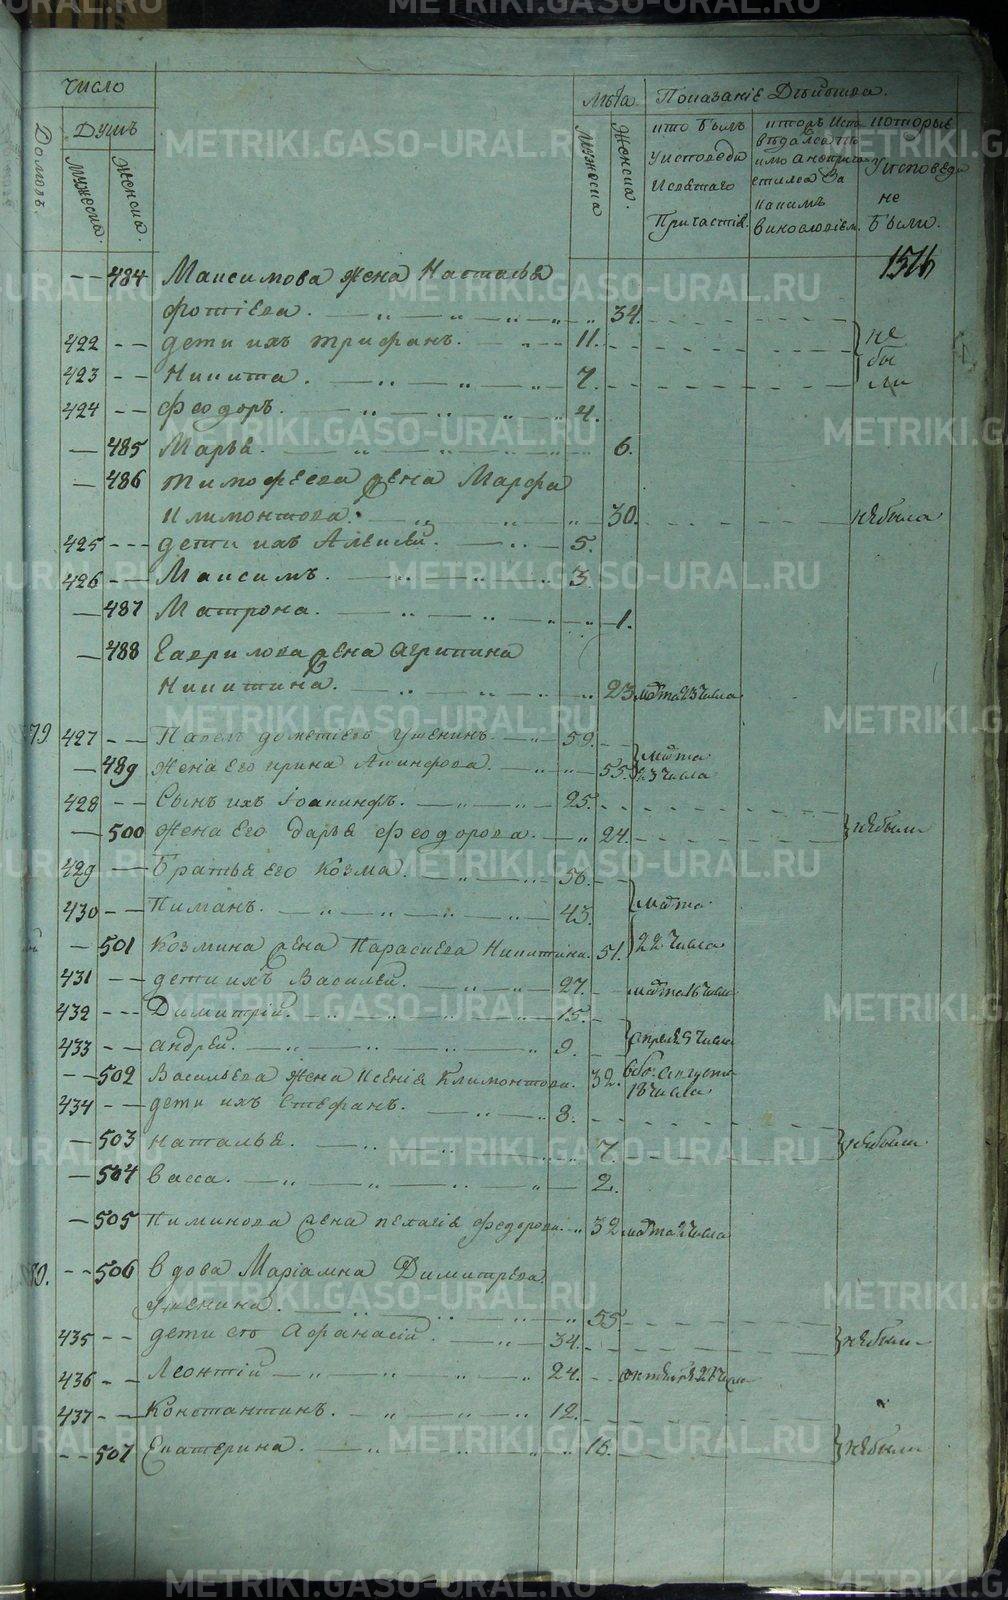 Число
Лѣта. Показанiе Дѣйства.
Домовъ. Душъ
Мужеска. Женска.
Мужеска Женска.
кто былъ
у исповеди
и святаго
Причастiя.
за
какимъ
винословiем.
которые
у исповеди
не
были.
-- 484 Максимова жена Наталья
Фотiева. 34.
422 -- дети ихъ Трифанъ. 11. не
423 -- Никита. 7. бы
424 -- Феодоръ. 4. ли
— 485 Марья. 6.
— 486 Тимофеева жена Марфа
Климонтова. 30. не была
425 --- дети ихъ Алексей. 5.
426 -- Максимъ. 3.
— 487 Матрона. 1.
— 488 Гаврилова жена Агрипина
Никитина. 23 марта 23 числа
79 427 -- Павелъ Дометiевъ Ушенинъ. 59. марта
— 489 жена его Ирина Акинфова. 55. 23 числа
428 -- Сынъ ихъ Iоакинфъ. 25.
— 500 жена его Дарья Феодорова. 24. не были
429 -- Братья его Козма. 56.
430 -- Пиманъ. 43. марта
— 501 Козмина жена Параскева Никитина. 51. 22 числа
431 -- дети ихъ Василей. 27. марта 16 числа
432 --- Димитрiй. 15.
433 -- Андрей. 9. апреля 5 числа
-- 502 Васильева жена Ксенiя Климонтова. 32. августа
18 числа
434 -- дети ихъ Стефанъ. 8.
— 503 Наталья. 7. не были
— 504 Васса. 2.
— 505 Пиминова жена Пелагiя Федорова. 32 марта 2 числа
80. -- 506 Вдова Марiамна Димитрева
Ушенина. 55.
435 -- дети ея Афанасiй. 34. не были
436 -- Леонтiй 24. октября 27 числа
437 -- Константинъ. 12.
-- 507 Екатерина. 16. не были
METRIKI.GASO-URAL.RU